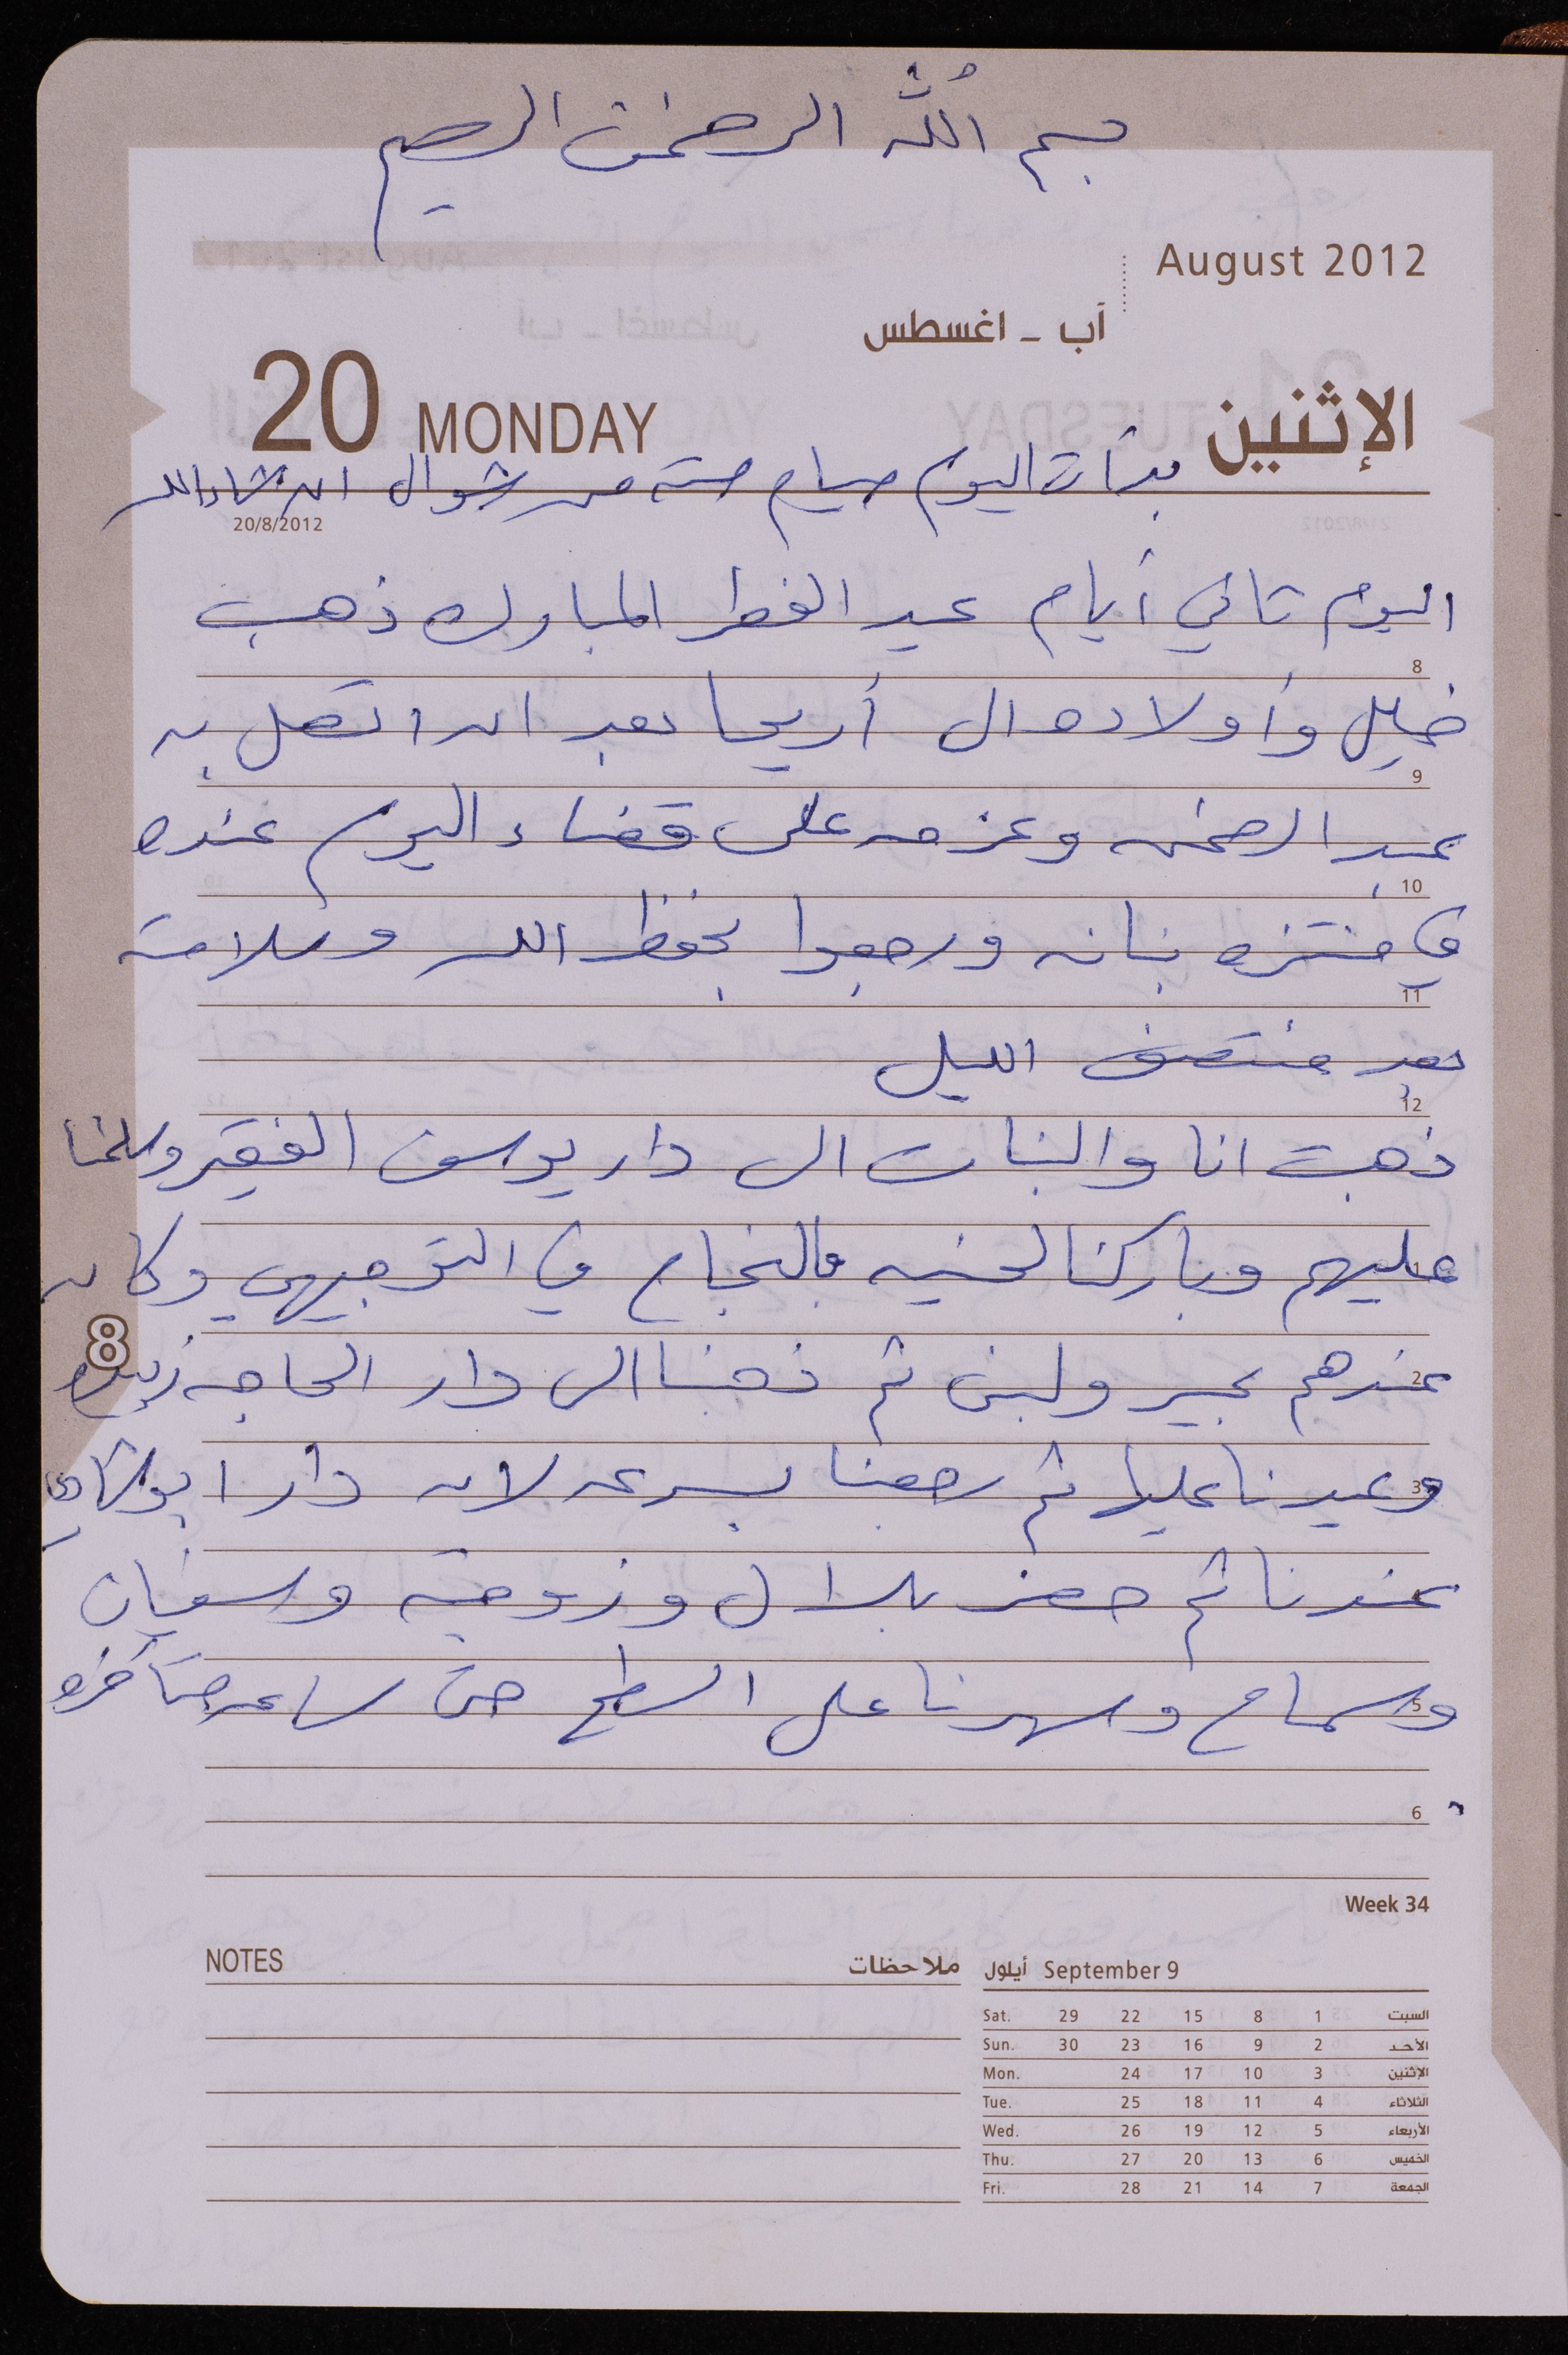 بسم الله الرحمن الرحيم
August 2012
آب - اغسطس
20 MONDAY الإثنين
بدأت اليوم صيام ستة من شوال ان شاء الله
20/8/2012
اليوم ثاني أيام عيد الفطر المبارك ذهب
8
خليل وأولاده الى أريحا بعد ان اتصل به
9
عبد الرحمن وعزمه على قضاء اليوم عنده
10
في منتزه بنانه ورجعوا بحفظ الله وسلامته
11
بعد منتصف الليل
12
ذهبت انا والبنات الى دار يوسف الفقير وسلمنا
عليهم وباركنا لحنيه بالنجاح في التوجيهي وكان
1
8
عندهم عبير ولبنى ثم ذهبنا الى دار الحاجه
2
وعيدنا عليها ثم رجعنا بسرعه لان دار ابو شادي
3
عندنا ثم حضر بلال وزوجته وسفيان
وسماح وسهرنا على السطح حتى ساعه متأخره
5
6
Week 34
NOTES ملاحظات
أيلول September 9
Sat. 29 22 15 8 1 السبت
Sun. 30 23 16 9 2 الأحد
Mon. 24 17 10 3 الإثنين
Tue. 25 18 11 4 الثلاثاء
Wed. 26 19 12 5 الأربعاء
Thu. 27 20 13 6 الخميس
Fri. 28 21 14 7 الجمعة